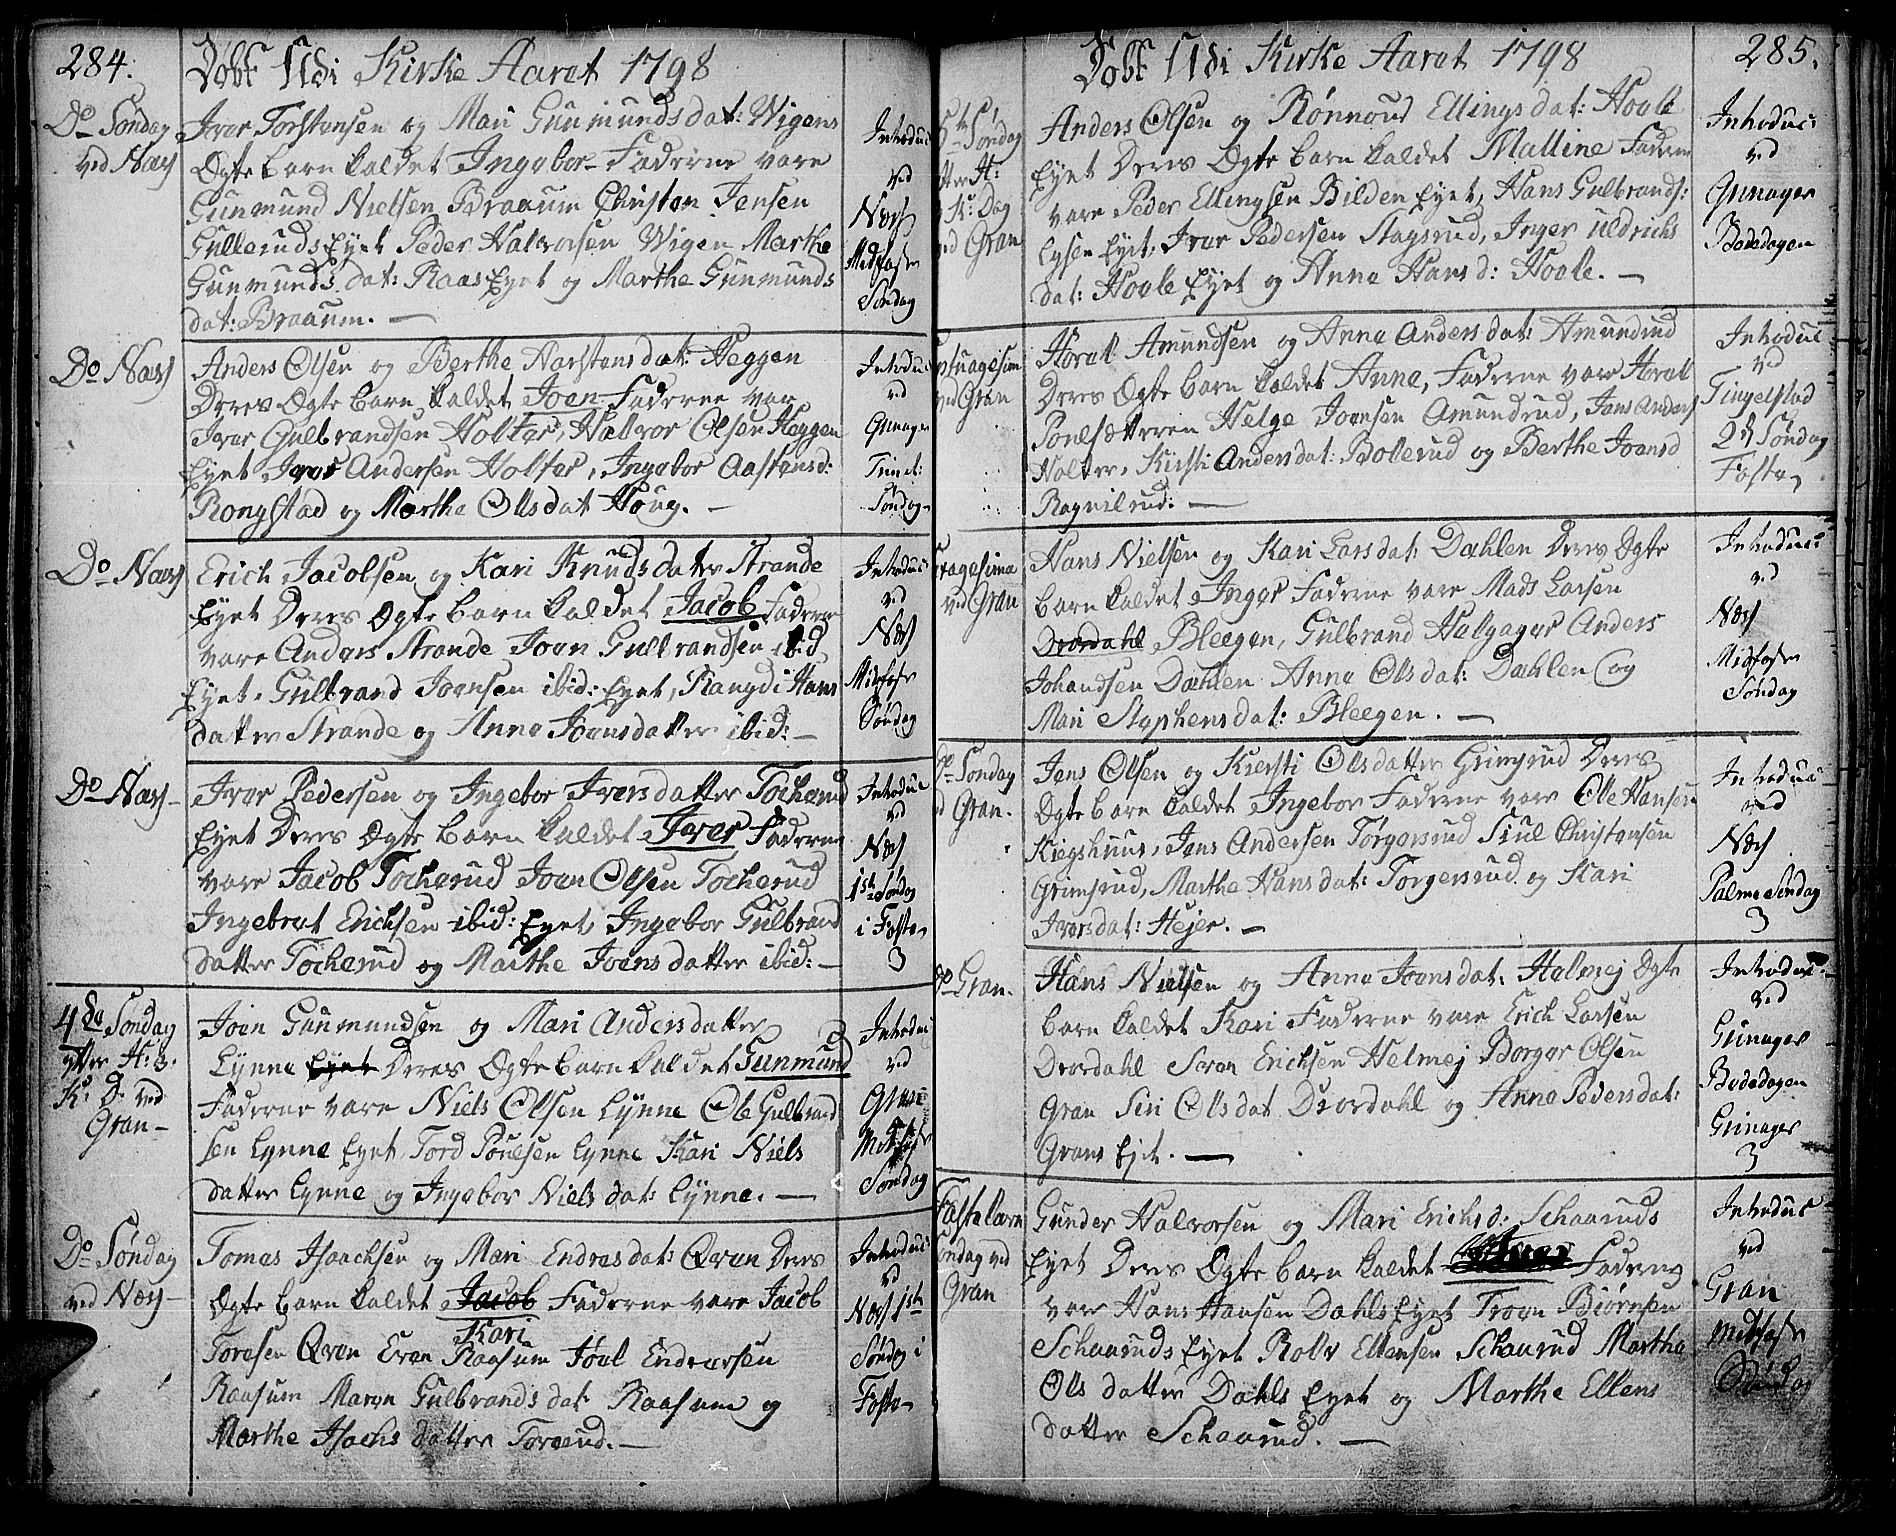 284.
Døbt Udi Kirke Aaret 1798
Do Søndag
ved Næs
Iver Torstensen og Mari Gunmundsdat: Wigens
Ægte barn kaldet Ingebor Faderne vare
Gunmund Nielsen Braaum Christen Jensen
Gullerudseyet Peder Halvorsen Wigen Marthe
Gunmunds dat: Raaseyet og Marthe Gunmunds
dat: Braaum. —
Introduc:
ved
Næs
Midfaste
Søndag
Do Næs
Anders Olsen og Berthe Aarstensdat: Heggen
Deres Ægte barn kaldet Joen Faderne var
Iver Gulbrandsen Holter, Halvor Olsen Heggen
Eyet Iver Andersen Holter, Ingebor Aastensd:
Rongstad og Marthe Olsdat Houg. —
Introduc
ved
Grinager
Trinit:
Søndag
Do Næs
Erich Jacobsen og Kari Knudsdatter Strande
Eyet Deres Ægte barn kaldet Jacob Faderne
vare Anders Strande Joen Gulbrandsen ibid
Eyet, Gulbrand Joensen ibid: Eyet, Rangdi Hans
datter Strande og Anne Joensdatter ibid: —
Introduc
ved
Næs
Midfaste
Søndag
Do Næs
Iver Pedersen og Ingebor Iversdatter Tocherud
Eyet Deres Ægte barn kaldet Iver Faderne
vare Jacob Tocherud Joen Olsen Tocherud
Ingebret Erichsen ibid: Eyet, Ingebor Gulbrand
datter Tocherud og Marthe Joensdatter ibid: —
Introduc
ved
Næs
1ste Søndag
i Faste
3
4de Søndag
efter H: 3.
K: D: ved
Gran
Joen Gunmundsen og Mari Andersdatter
Lynne Eyet Deres Ægte barn kaldet Gunmund
Faderne vare Niels Olsen Lynne Ole Gulbrand
sen Lynne Eyet Tord Poulsen Lynne Kari Niels
datter Lynne og Ingebor Nielsdat: Lynne. —
Introduc
ved
Gran
Midfaste
Søndag
Do Søndag
ved Næs
Tomas Isaachsen og Mari Endresdat: Qvæn Deres
Ægte barn kaldet Jacob Faderne vare Jacob
Kari
Toresen Qvæn Even Raasum Joel Endresen
Raasum Maren Gulbrandsdat Raasum og
Marthe Isachsdatter Torgerud. —
Introduc:
ved
Næs 1ste
Søndag i
Faste
285.
Døbt Udi Kirke Aaret 1798
5te Søndag
efter H:
K: Dag
ved Gran
Anders Olsen og Rønnoud Ellingsdat: Hovle
Eyet Deres Ægte barn kaldet Malline Faderne
vare Peder Ellingsen Bilden Eyet, Hans Gulbrands:
Lysen Eyet, Iver Pedersen Stagsrud, Inger Uldrichs
dat: Hovle Eyet og Anne Hansd: Hovle. —
Introduc:
ved
Grinager
Bededagen
Septuagesim
ved Gran
Horal Amundsen og Anne Andersdat: Amundrud
Deres Ægte barn kaldet Anne, Faderne var Horal
Helge Joensen Amundrud, Jens Anders
Holter, Kirsti Andersdat: Bolerud og Berthe Joensd
Ragnilrud: —
Introduc
ved
Tingelstad
2den Søndag
Faste
Sexagesima
ved Gran
Hans Nielsen og Kari Larsdat: Dæhlen Deres Ægte
barn kaldet Inger Faderne vare Mads Larsen
Dværdahl Bleegen, Gulbrand Halgager Anders
Johandsen Dæhlen Anne Olsdat: Dæhlen og
Mari Stephensdat: Bleegen. —
Introduc:
ved
Næs
Midfaste
Søndag
Do Søndag
ved Gran.
Jens Olsen og Kiersti Olsdatter Grimsrud Deres
Ægte barn kaldet Ingebor Faderne vare Ole Hansen
Kiegshuus, Jens Andersen Torgersrud Siul Christensen
Grimsrud, Marthe Hansdat: Torgersrud og Kari
Iversdat: Hejer. —
Introduc:
ved
Næs
Palme Søndag
3
Do Gran.
Hans Nielsen og Anne Joensdat: Helmej Ægte
barn kaldet Kari Faderne vare Erich Larsen
Dværdahl Søren Erichsen Helmej Borger Olsen
Gran Siri Olsdat Dværdahl og Anne Pedersdat:
Grans Ejet. —
Introduc:
ved
Grinager
Bededagen
Grinager
3
Fastelavn
Søndag ved
Gran
Gunder Halvorsen og Mari Erichsd: Schaaruds
Eyet Deres Ægte barn kaldet Faderne
var Hans Hansen Dahls Eyet Troen Biørnsen
Schaaruds Eyet Rolv Ellensen Schaarud Marthe
Ols datter Dahls Eyet og Marthe Ellens
datter Schaarud. —
Introduc
ved
Gran
Midfaste
Søndag